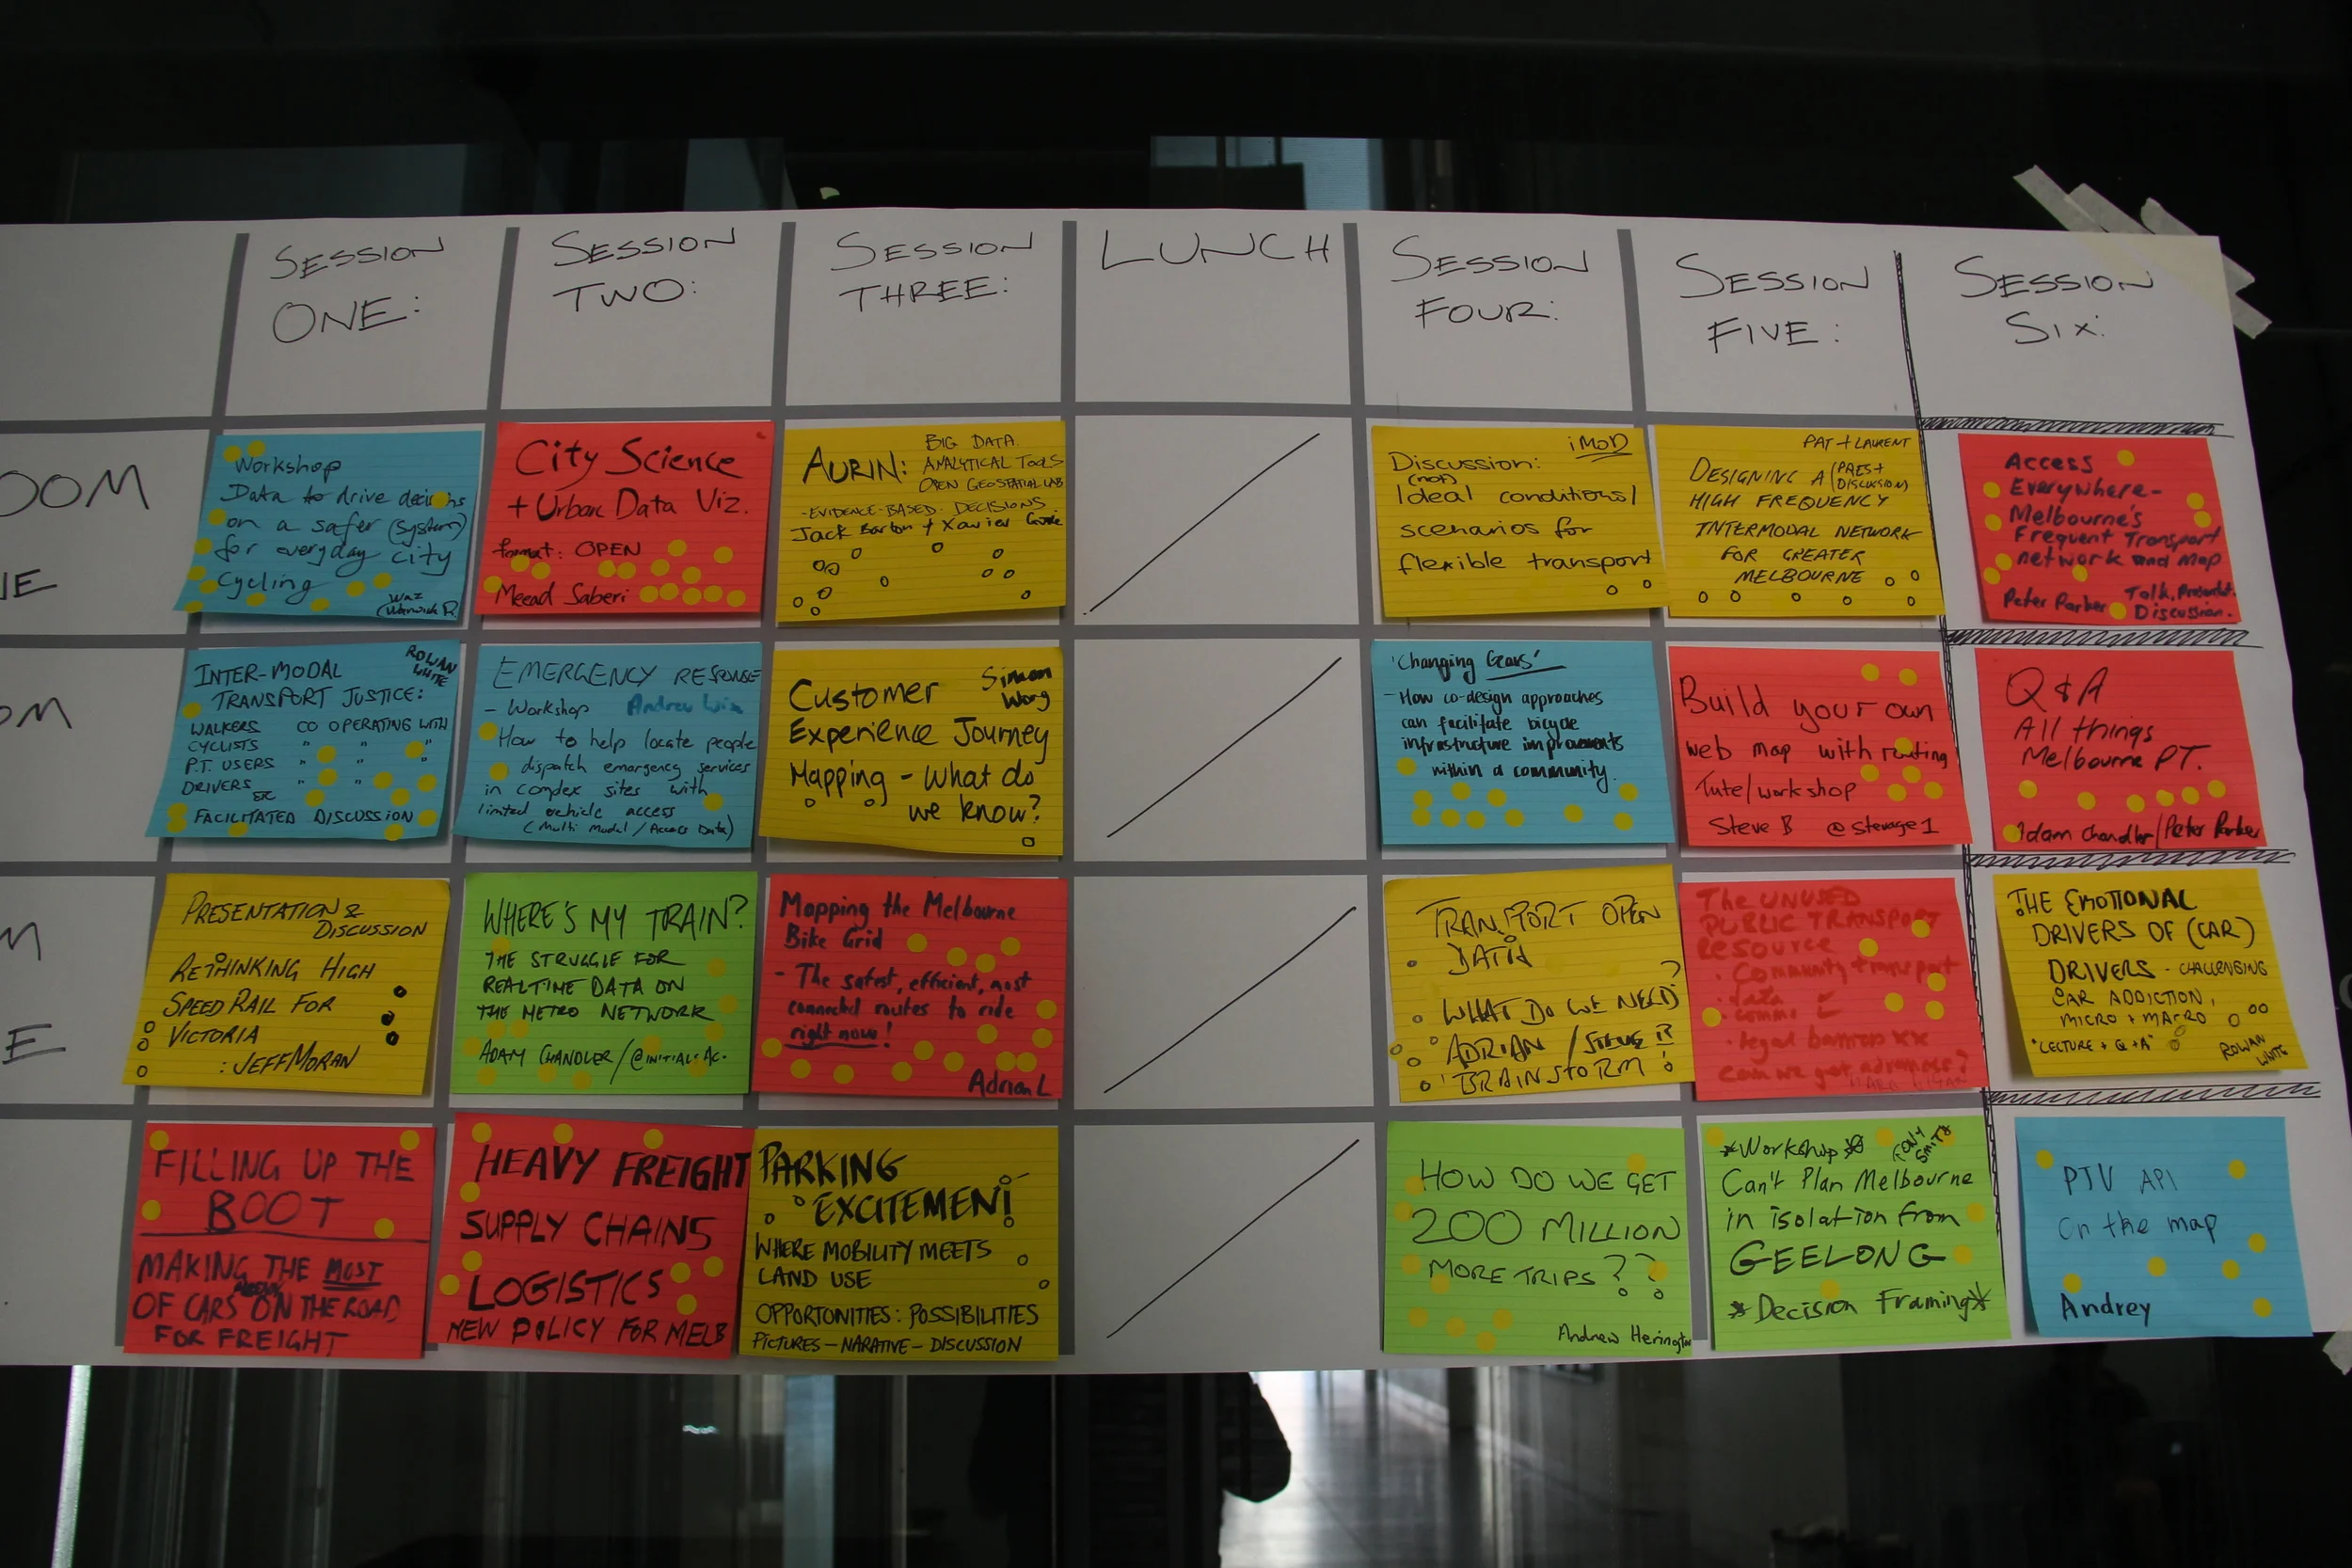 SESSION
ONE:
SESSION
TWO:
SESSION
THREE:
LUNCH
SESSION
FOUR:
SESSION
FIVE:
SESSION
SIX:
OOM
NE
Workshop
Data to drive decisions
on a safer (system)
for everyday city
cycling
Waz
(Warwick R
City Science
+ Urban Data Viz.
format: OPEN
Meead Saberi
AURIN:
BIG DATA
ANALYTICAL TOOLS
OPEN GEOSPATIAL LAB
-EVIDENCE-BASED DECISIONS
Jack Barton + Xavier
iMOD
Discussion:
(not)
Ideal conditions/
scenarios for
flexible transport
PAT + LAURENT
DESIGNING A (PRES+
DISCUSSION)
HIGH FREQUENCY
INTERMODAL NETWORK
FOR GREATER
MELBOURNE
Access
Everywhere-
Melbourne's
Frequent Transport
network and map
Peter Parker
Talk, Presentat.
Discussion.
OM
INTER-MODAL
ROWAN
WHITE
TRANSPORT JUSTICE:
WALKERS CO OPERATING WITH
CYCLISTS " " "
P.T. USERS " " "
DRIVERS "
FACILITATED DISCUSSION
EMERGENCY RESPONSE
- Workshop Andrew
How to help locate people
dispatch emergency services
in complex sites with
limited vehicle access
(Multi Modal / Access Data)
Customer
Simon
Wong
Experience Journey
Mapping - What do
we know?
'Changing Gears'
- How co-design approaches
can facilitate bicycle
infrastructure improvements
within a community.
Build your own
web map with routing
Tute/workshop
Steve B @stevage1
Q & A
All things
Melbourne PT.
Adam Chandler/Peter Parker
M
E
PRESENTATION &
DISCUSSION
RETHINKING HIGH
SPEED RAIL FOR
VICTORIA
: JEFF MORAN
WHERE'S MY TRAIN?
THE STRUGGLE FOR
REALTIME DATA ON
THE METRO NETWORK
ADAM CHANDLER/
Mapping the Melbourne
Bike Grid
- The safest, efficient, most
connected routes to ride
right now!
Adrian L
TRANSPORT OPEN
DATA
WHAT DO WE NEED?
ADRIAN / STEVE B
BRAINSTORM!
The UNUSED
PUBLIC TRANSPORT
Resource
· Community transport
· data
· comms
· legal
can we get
THE EMOTIONAL
DRIVERS OF (CAR)
DRIVERS - CHALLENGING
CAR ADDICTION,
MICRO + MACRO
"LECTURE + Q + A"
ROWAN
WHITE
FILLING UP THE
BOOT
MAKING THE MOST
OF CARS ON THE ROAD
FOR FREIGHT
HEAVY FREIGHT
SUPPLY CHAINS
LOGISTICS
NEW POLICY FOR MELB
PARKING
EXCITEMENT!
WHERE MOBILITY MEETS
LAND USE
OPPORTUNITIES: POSSIBILITIES
PICTURES - NARATIVE - DISCUSSION
HOW DO WE GET
200 MILLION
MORE TRIPS??
Andrew Herington
*Workshop*
TONY
SMITH
Can't Plan Melbourne
in isolation from
GEELONG
*Decision Framing*
PTV API
On the map
Andrey